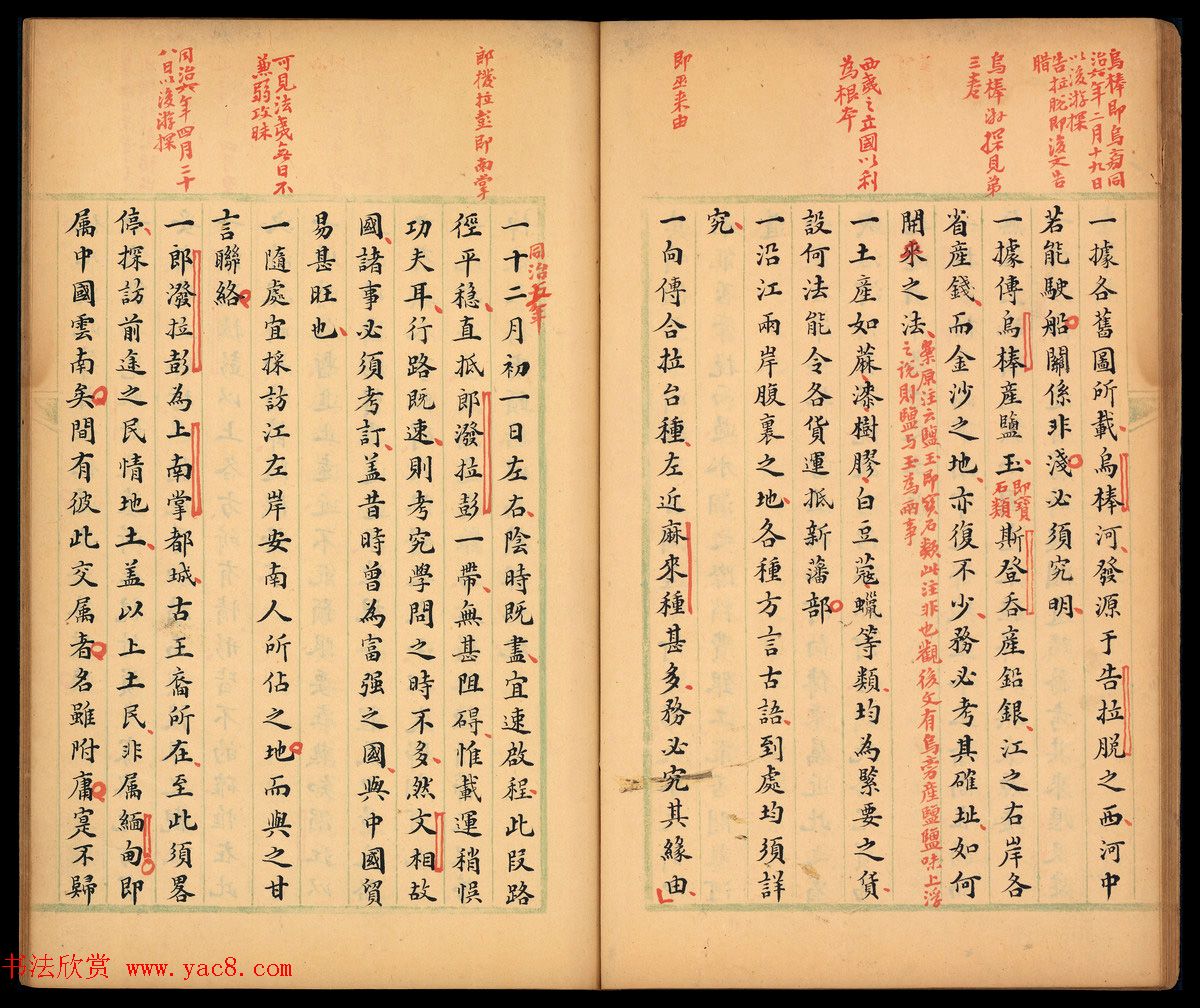 烏棒即烏舊同
治六年二月十九日
以後游探
告拉脫即後文告
腊
烏棒游探見弟
三卷
西夷之立國以利
為根本
即巫來由
一據各舊圖所載烏棒河發源于告拉脫之西河中
若能駛船關係非淺必須究明
一據傳烏棒產鹽玉即寶石類斯登吞產鉛銀江之右岸各
省產錢而金沙之地亦復不少務必考其確址如何
開來之法桑原注云鹽玉即寶石類此注非也觀後文有烏旁產鹽鹽味上浮
之說則鹽与玉為兩事
一土產如蔴漆樹膠白豆蔻蠟等類均為緊要之貨
設何法能令各貨運抵新藩部
一沿江兩岸腹裏之地各種方言古語到處均須詳
究
一向傳合拉台種左近麻來種甚多務必究其緣由
郎撥拉彭即南掌
可見法夷無日不
兼弱攻昧
同治六年四月二十
八日以後游探
同治五年
一十二月初一日左右陰時既盡宜速啟程此段路
徑平穩直抵郎潑拉彭一帶無甚阻碍惟載運稍悞
功夫耳行路既速則考究學問之時不多然文相故
國諸事必須考訂蓋昔時曾為富强之國與中國貿
易甚旺也
一隨處宜採訪江左岸安南人所佔之地而與之甘
言聯絡
一郎潑拉彭為上南掌都城古王裔所在至此須畧
停探訪前途之民情地土蓋以上土民非属緬甸即
属中國雲南矣間有彼此交属者名雖附庸寔不歸
书法欣赏 www.yac8.com